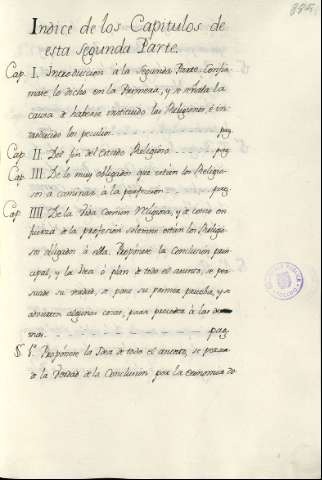 885.
Indice de los Capitulos de
esta segunda Parte.
Cap. I. Introduccion á la Segunda Parte. Confir
mase lo dicho en la Primera, y se señala la
causa de haberse instituido las Religiones, é in
troducido los peculios. pag.
Cap. II. Del fin del estado Religioso. pag.
Cap. III. De lo muy obligados que estan los Religio
sos á caminar á la perfeccion. pag.
Cap. IIII. De la Vida Comun Religiosa, y de como en
fuerza de la profesion solemne estan los Religio
sos obligados á ella. Proponese la Conclusion prin
cipal, y la Idea ó plan de todo el asunto, se per
suade su verdad, se pone su primera prueba, y se
advierten algunas cosas, para proceder á las de
mas. pag.
§. 1º. Proponese la Idea de todo el asunto, se persua
de la Verdad de la Conclusion por la economia de